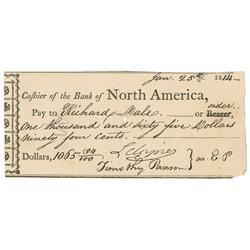 Jan. 25th 1814
Cashier of the Bank of North America,
order
Pay to Richard Dale or Bearer,
One thousand and sixty five Dollars
ninety four cents.
Dollars, 1065 94/100
Timothy Paxson as E.P